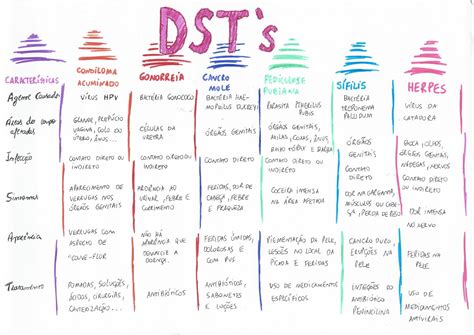 DST's
CARACTERÍSTICAS
CONDILOMA
ACUMINADO
GONORREIA
CANCRO
MOLE
PEDICULOSE
PUBIANA
SÍFILIS
HERPES
Agente Causador
VÍRUS HPV
BACTÉRIA GONOCOCO
BACTÉRIA HAE-
MOPHILUS DUCREYI
PARASITA PHTHIRUS
PUBIS
BACTÉRIA
TREPONEMA
PALLIDUM
VÍRUS DA
CATAPORA
afetadas
GLANDE, PREPÚCIO
VAGINA, COLO DO
ÚTERO, ÂNUS...
CÉLULAS DA
URETRA
ÓRGÃOS GENITAIS
ÓRGÃOS GENITAIS,
MÃOS, COXAS, ÂNUS
TÓRAX E BARBA
ÓRGÃOS
GENITAIS
BOCA, OLHOS,
ÓRGÃOS GENITAS,
NÁDEGAS, NERVOS
Infecção
CONTATO DIRETO OU
INDIRETO
CONTATO DIRETO/OU
INDIRETO
CONTATO DIRETO
CONTATO DIRETO OU
INDIRETO
CONTATO DIRETO
CONTATO DIRETO
OU INDIRETO
Sintomas
APARECIMENTO DE
VERRUGAS NOS
ÓRGÃOS GENITAIS
ARDÊNCIA AO
URINAR, FEBRE E
CORRIMENTO
FERIDAS, DOR DE
CABEÇA, FEBRE
E FRAQUEZA
COCEIRA INTENSA
NA ÁREA AFETADA
DOR NA GARGANTA,
MÚSCULOS, OU CABE
ÇA, PERDA DE PESO
DOR INTENSA
NO NERVO
Aparência
VERRUGAS COM
ASPECTO DE
"COUVE-FLOR"
NÃO HÁ
APARÊNCIA QUE
DENUNCIE A
DOENÇA.
FERIDAS ÚNICAS,
DOLOROSAS E
COM PUS
PIGMENTAÇÃO DA PELE,
LESÕES NO LOCAL DA
PICADA E FERIDAS
CANCRO DURO,
ERUPÇÕES NA
PELE
FERIDAS NA
PELE
Tratamento
POMADAS, SOLUÇÕES,
ÁCIDOS, CIRURGIAS,
CAUTERIZAÇÃO...
ANTIBIÓTICOS
ANTIBIÓTICOS,
SABONETES
E LOÇÕES
USO DE MEDICAMENTOS
ESPECÍFICOS
INJEÇÃO DO
ANTIBIÓTICO
PENICILINA
USO DE
MEDICAMENTOS
ANTIVIRAIS